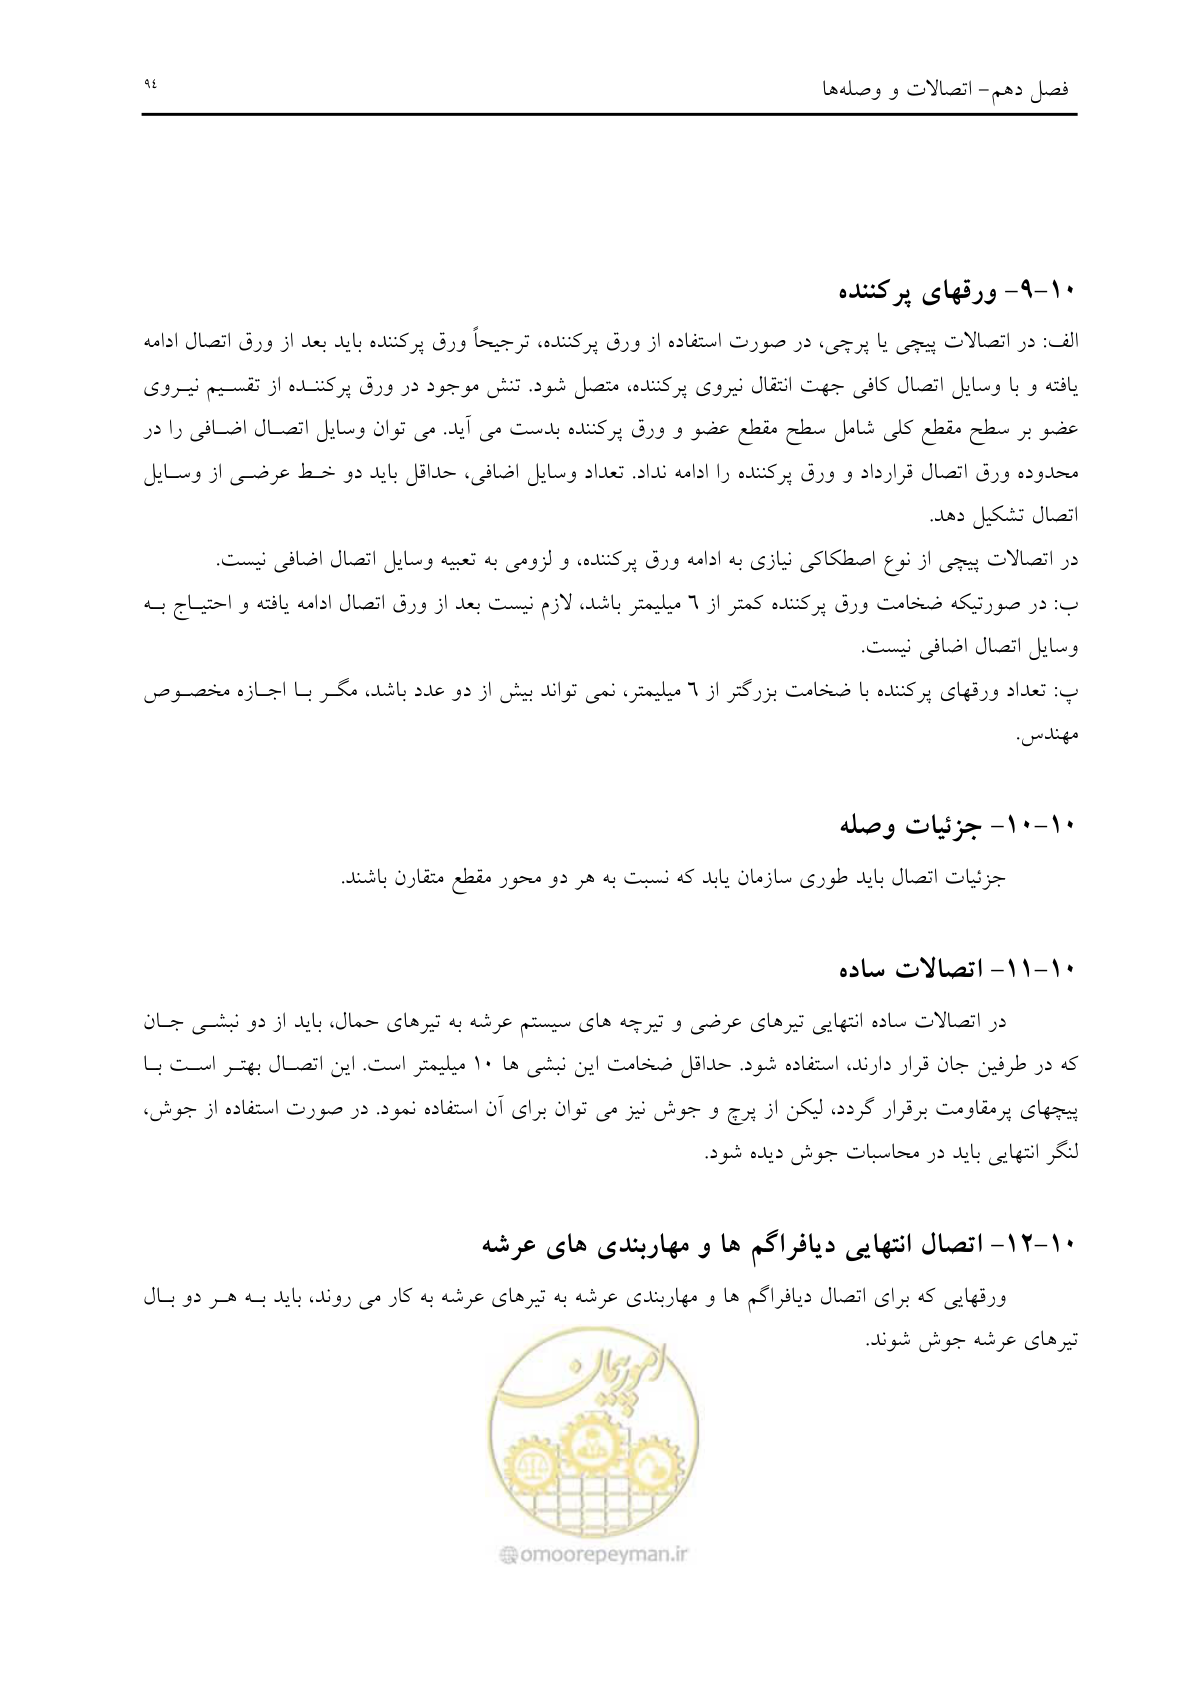 فصل دهم– اتصالات و وصله‌ها
٩٤
١٠–٩– ورقهای پرکننده
الف: در اتصالات پیچی یا پرچی، در صورت استفاده از ورق پرکننده، ترجیحاً ورق پرکننده باید بعد از ورق اتصال ادامه
یافته و با وسایل اتصال کافی جهت انتقال نیروی پرکننده، متصل شود. تنش موجود در ورق پرکننـده از تقسـیم نیـروی
عضو بر سطح مقطع کلی شامل سطح مقطع عضو و ورق پرکننده بدست می آید. می توان وسایل اتصـال اضـافی را در
محدوده ورق اتصال قرارداد و ورق پرکننده را ادامه نداد. تعداد وسایل اضافی، حداقل باید دو خـط عرضـی از وسـایل
اتصال تشکیل دهد.
در اتصالات پیچی از نوع اصطکاکی نیازی به ادامه ورق پرکننده، و لزومی به تعبیه وسایل اتصال اضافی نیست.
ب: در صورتیکه ضخامت ورق پرکننده کمتر از ٦ میلیمتر باشد، لازم نیست بعد از ورق اتصال ادامه یافته و احتیـاج بـه
وسایل اتصال اضافی نیست.
پ: تعداد ورقهای پرکننده با ضخامت بزرگتر از ٦ میلیمتر، نمی تواند بیش از دو عدد باشد، مگـر بـا اجـازه مخصـوص
مهندس.
١٠–١٠– جزئیات وصله
جزئیات اتصال باید طوری سازمان یابد که نسبت به هر دو محور مقطع متقارن باشند.
١٠–١١– اتصالات ساده
در اتصالات ساده انتهایی تیرهای عرضی و تیرچه های سیستم عرشه به تیرهای حمال، باید از دو نبشـی جـان
که در طرفین جان قرار دارند، استفاده شود. حداقل ضخامت این نبشی ها ١٠ میلیمتر است. این اتصـال بهتـر اسـت بـا
پیچهای پرمقاومت برقرار گردد، لیکن از پرچ و جوش نیز می توان برای آن استفاده نمود. در صورت استفاده از جوش،
لنگر انتهایی باید در محاسبات جوش دیده شود.
١٠–١٢– اتصال انتهایی دیافراگم ها و مهاربندی های عرشه
ورقهایی که برای اتصال دیافراگم ها و مهاربندی عرشه به تیرهای عرشه به کار می روند، باید بـه هـر دو بـال
تیرهای عرشه جوش شوند.
امور پیمان
@omoorepeyman.ir